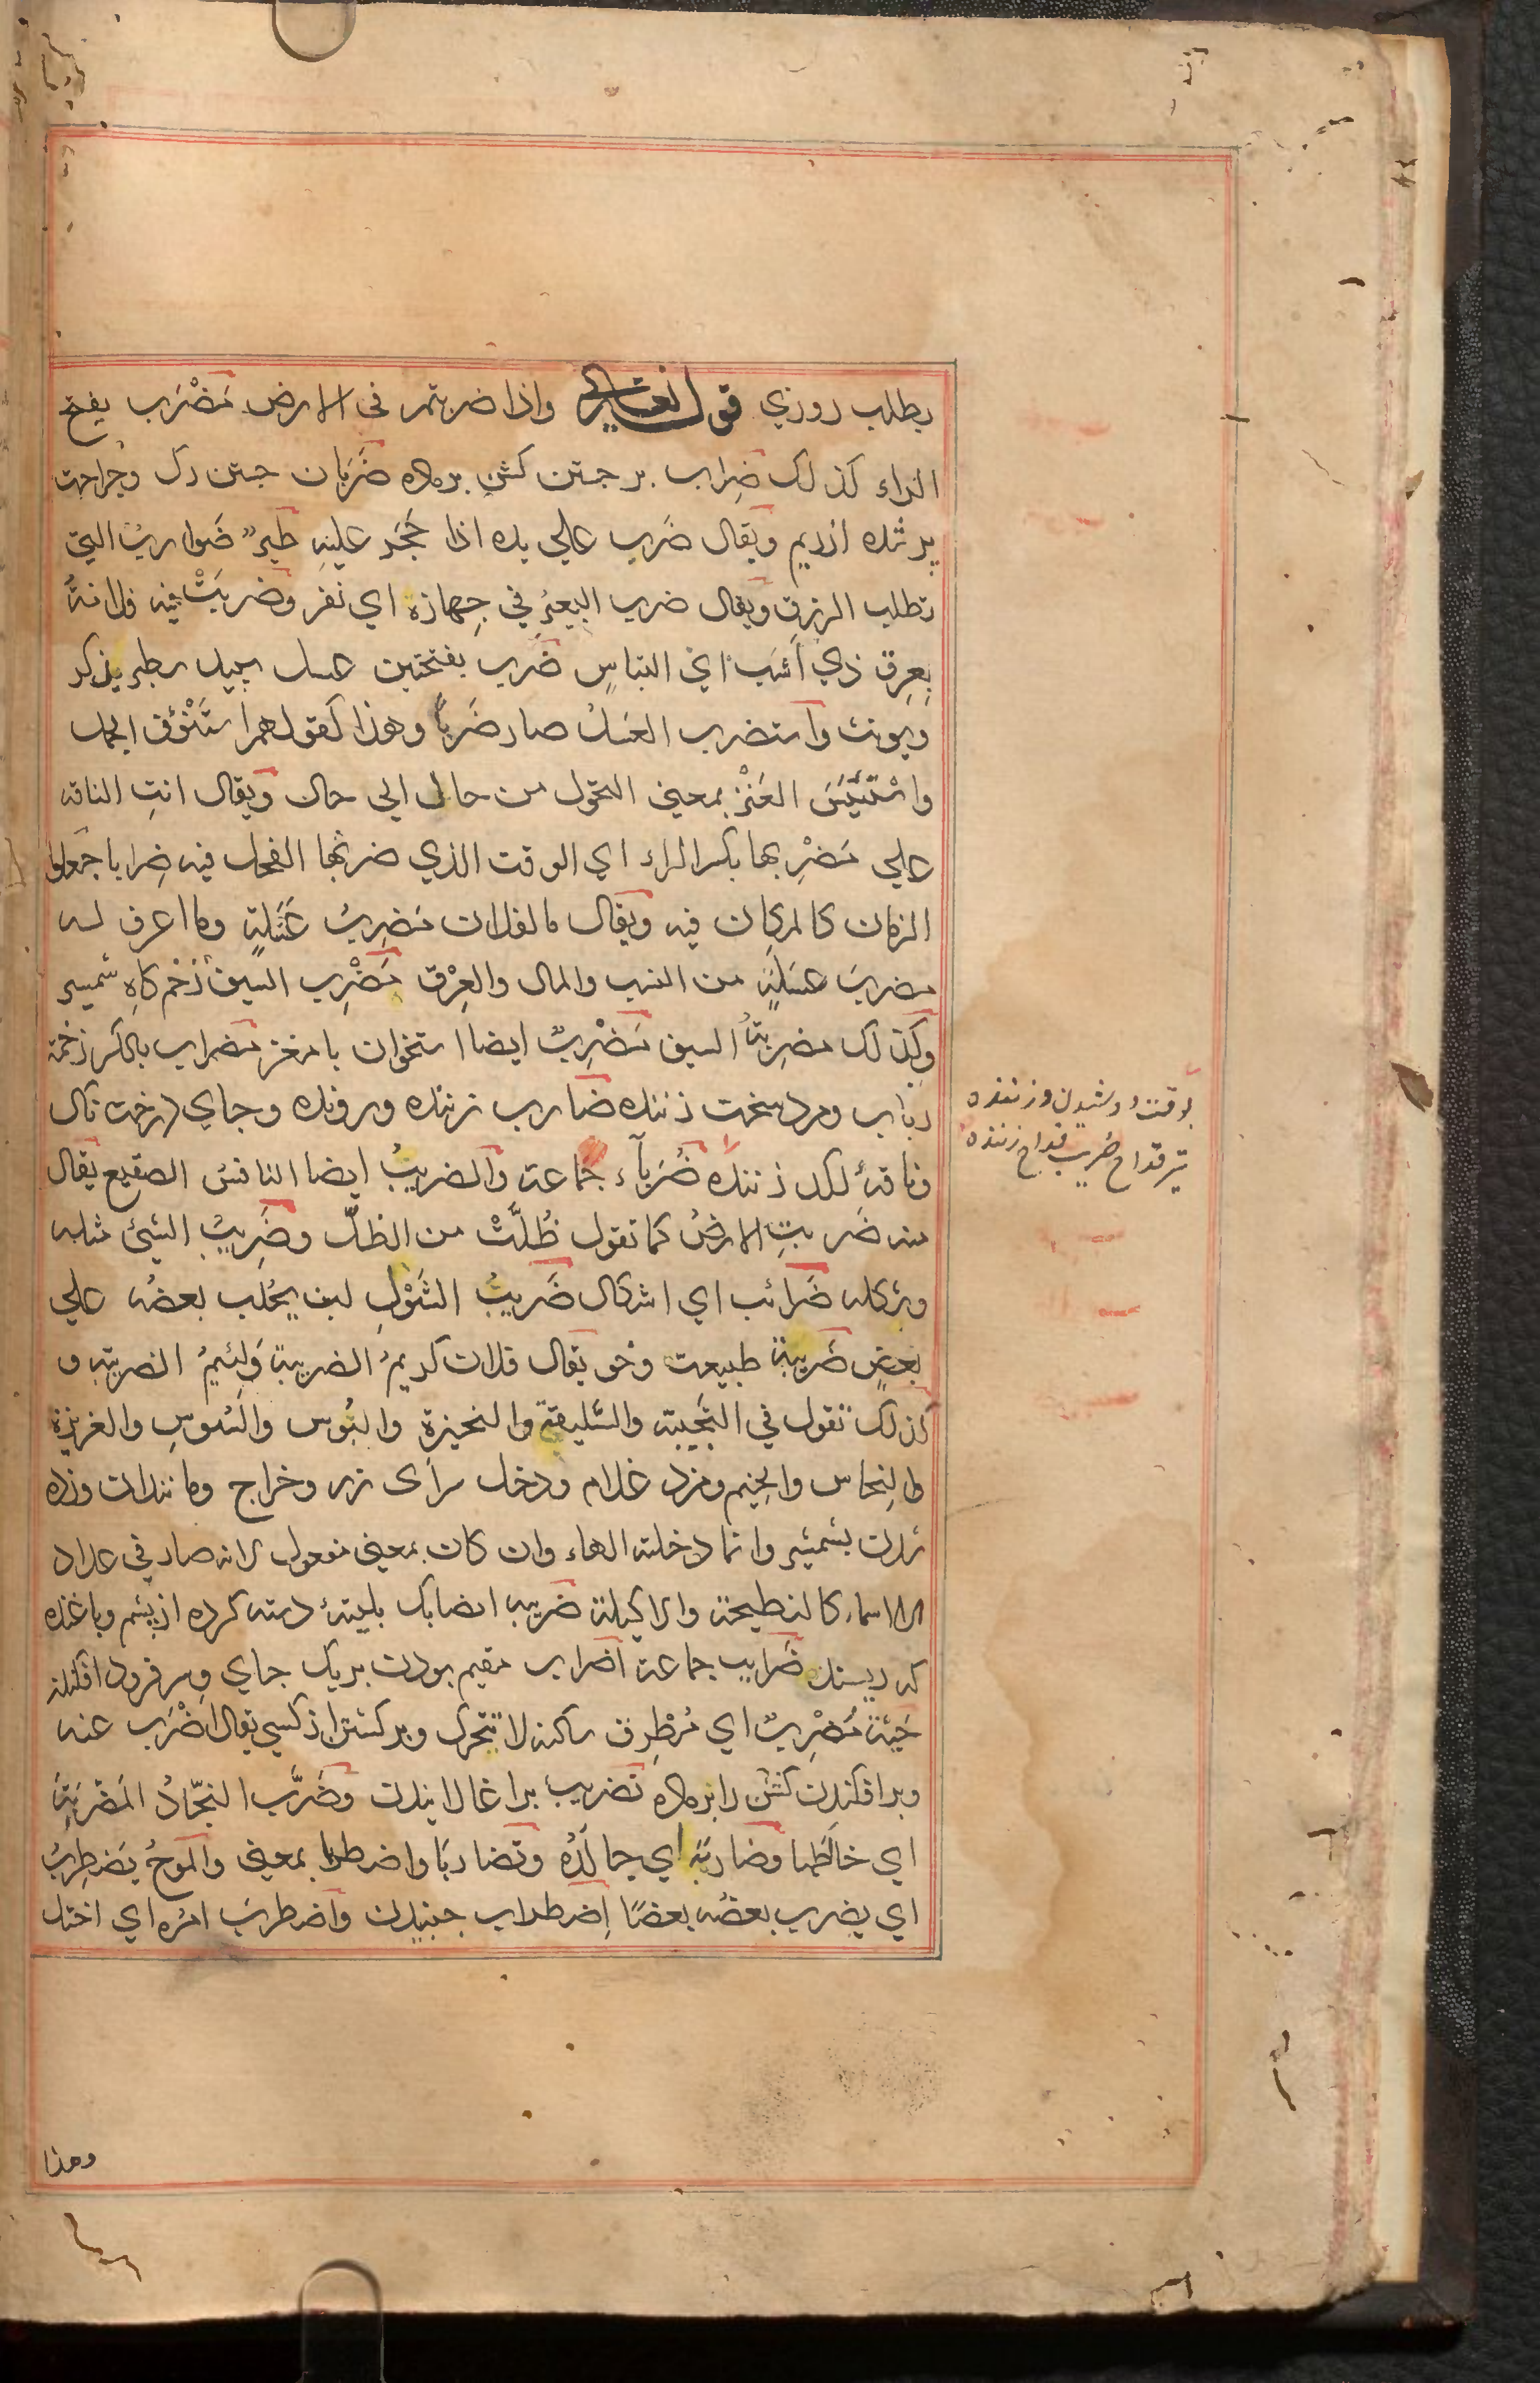 بطلب روزي قوله تعالى واذا ضربتم فى الارض مَضْرَب بفتح
الراء كذلك ضِراب بر جستن كشن بر ماده ضَرَبان جستن رك وجراحت
پر شده از ريم ويقال ضَرب علي يده اذا حَجَر عليْهِ طيرٌ ضَواربُ التي
تطلب الرزق ويقال ضرب البعيرُ في جِهازه اي نفر وضربَتْ فيه فلانةُ
بِعِرق ذي اَشَب اي التباسٍ ضَرب بفتحتين عسل سپيد سطبر يذكر
ويونث واستضرب العسلُ صار ضَرَباً وهذا كقولهم استَنْوَق الجمل
واسْتَتْيَسَ العَنْز بمعنى التحول من حال الى حال ويقال اتتِ الناقه
علي مَضْرِبها بكسر الراء اي الوقت الذي ضربَها الفحل فيه ضِرابا جَعلوا
الزمان كالمكان فيه ويقال ما لفلان مَضرِبُ عَسَلةٍ وما اعرف له
مضربَ عَسَلةٍ من النسب والمال والعِرْق مَضْرِب السيف زخم كاهِ شمشير
وكذلك مضرِبَةُ السيف مَضْرِبٌ ايضا استخوان با مغز مضراب بالكسر زخمة
رباب ومرد سخت زننده ضارب زننده ورونده وجاي درخت ناك
وناقهٔ لكد زننده ضُرَباَء جماعة والضريبُ ايضا النافسُ الصقيع يقال
منه ضَربتِ الارضُ كما تقول طُلَّتْ من الطلّ وضَرِيبُ الشيئ مثله
وشكله ضَرائب اي اشكال ضَريبُ الشَوْلِ لبن يُحلب بعضُه علي
بعضٍ ضَريبة طبيعت وخو يقال فلان كريمُ الضريبة ولئيمُ الضريبة و
كذلك تقول في النَحِيتة والسَّليقة والنحيزة والتُوس والسُوسِ والغريزة
والنِحاس والخِيم ومزد غلام ودخل سراى زر وخراج وماننداٰن وزده
شدن بشمشير وانما دخلته الهاء وان كان بمعنى مفعول لانه صار في عداد
الاسماء كالنطيحة والاكيلة ضريبه ايضا يك پليتهٔ دسته كرده از پشم وپاغنده
كه ريسند ضَرايب جماعة اضراب مقيم بودن بر يك جاي وسر فرود افكندن
حَيّة مُضْرِبٌ اي مُطْرِق ساكنه لا تتحرك وبر كشتن از كسي يقال اضْرَب عنه
وبر افكندن كشن را بر ماده تضريب بر اغالانيدن وضَرَّب النجّادُ المُضَرَبَةَ
اي خاطَها وضاربَه اي جالَدَهُ وتضاربَا واضطربا بمعنى والموجُ يَضطرِبُ
اي يضرب بعضُه بعضًا اِضطراب جنبيدن واضطربَ امرُه اي اختل
وهذا
تير قداح ضُرب قداح زننده